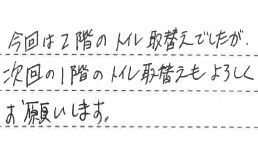 今回は2階のトイレ取替えでしたが、
次回の1階のトイレ取替えもよろしく
お願いします。